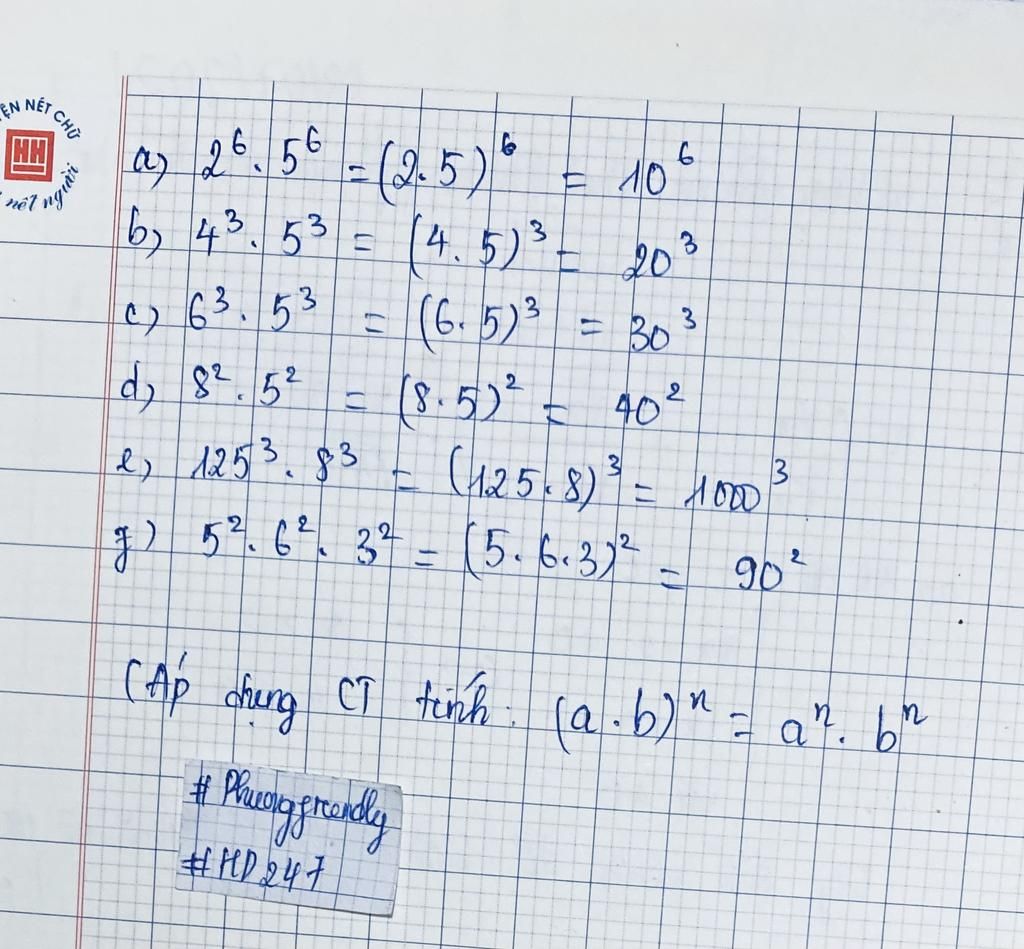 ỆN NÉT CHỮ
HH
nết người
a) 2⁶ . 5⁶ = (2.5)⁶ = 10⁶
b) 4³ . 5³ = (4.5)³ = 20³
c) 6³ . 5³ = (6.5)³ = 30³
d) 8² . 5² = (8.5)² = 40²
e) 125³ . 8³ = (125.8)³ = 1000³
g) 5² . 6² . 3² = (5.6.3)² = 90²
(Áp dụng CT tính : (a.b)ⁿ = aⁿ . bⁿ
# Phuongfreendly
#HD247